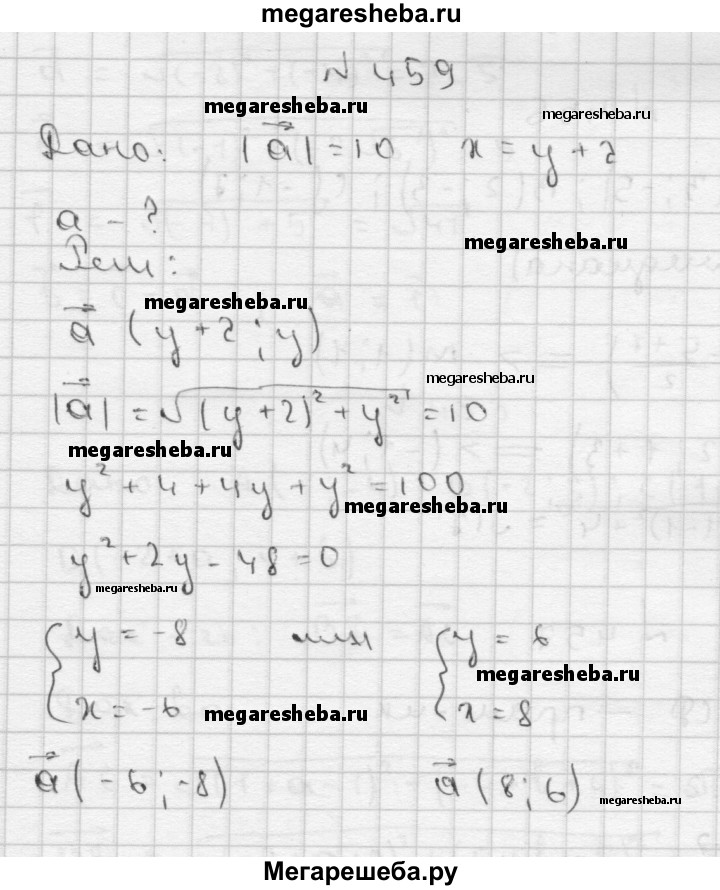 megaresheba.ru
№ 459
megaresheba.ru
megaresheba.ru
Дано: |a⃗| = 10 x = y + 2
a - ?
megaresheba.ru
Реш:
megaresheba.ru
a⃗ (y + 2 ; y)
megaresheba.ru
|a⃗| = √(y + 2)² + y² = 10
megaresheba.ru
y² + 4 + 4y + y² = 100
megaresheba.ru
y² + 2y - 48 = 0
megaresheba.ru
{ y = -8 или { y = 6
megaresheba.ru
x = -6 x = 8
megaresheba.ru
a⃗ (-6 ; -8) a⃗ (8 ; 6)
megaresheba.ru
Мегарешеба.ру